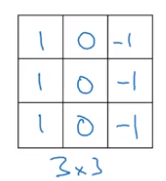 1 0 -1
1 0 -1
1 0 -1
3x3